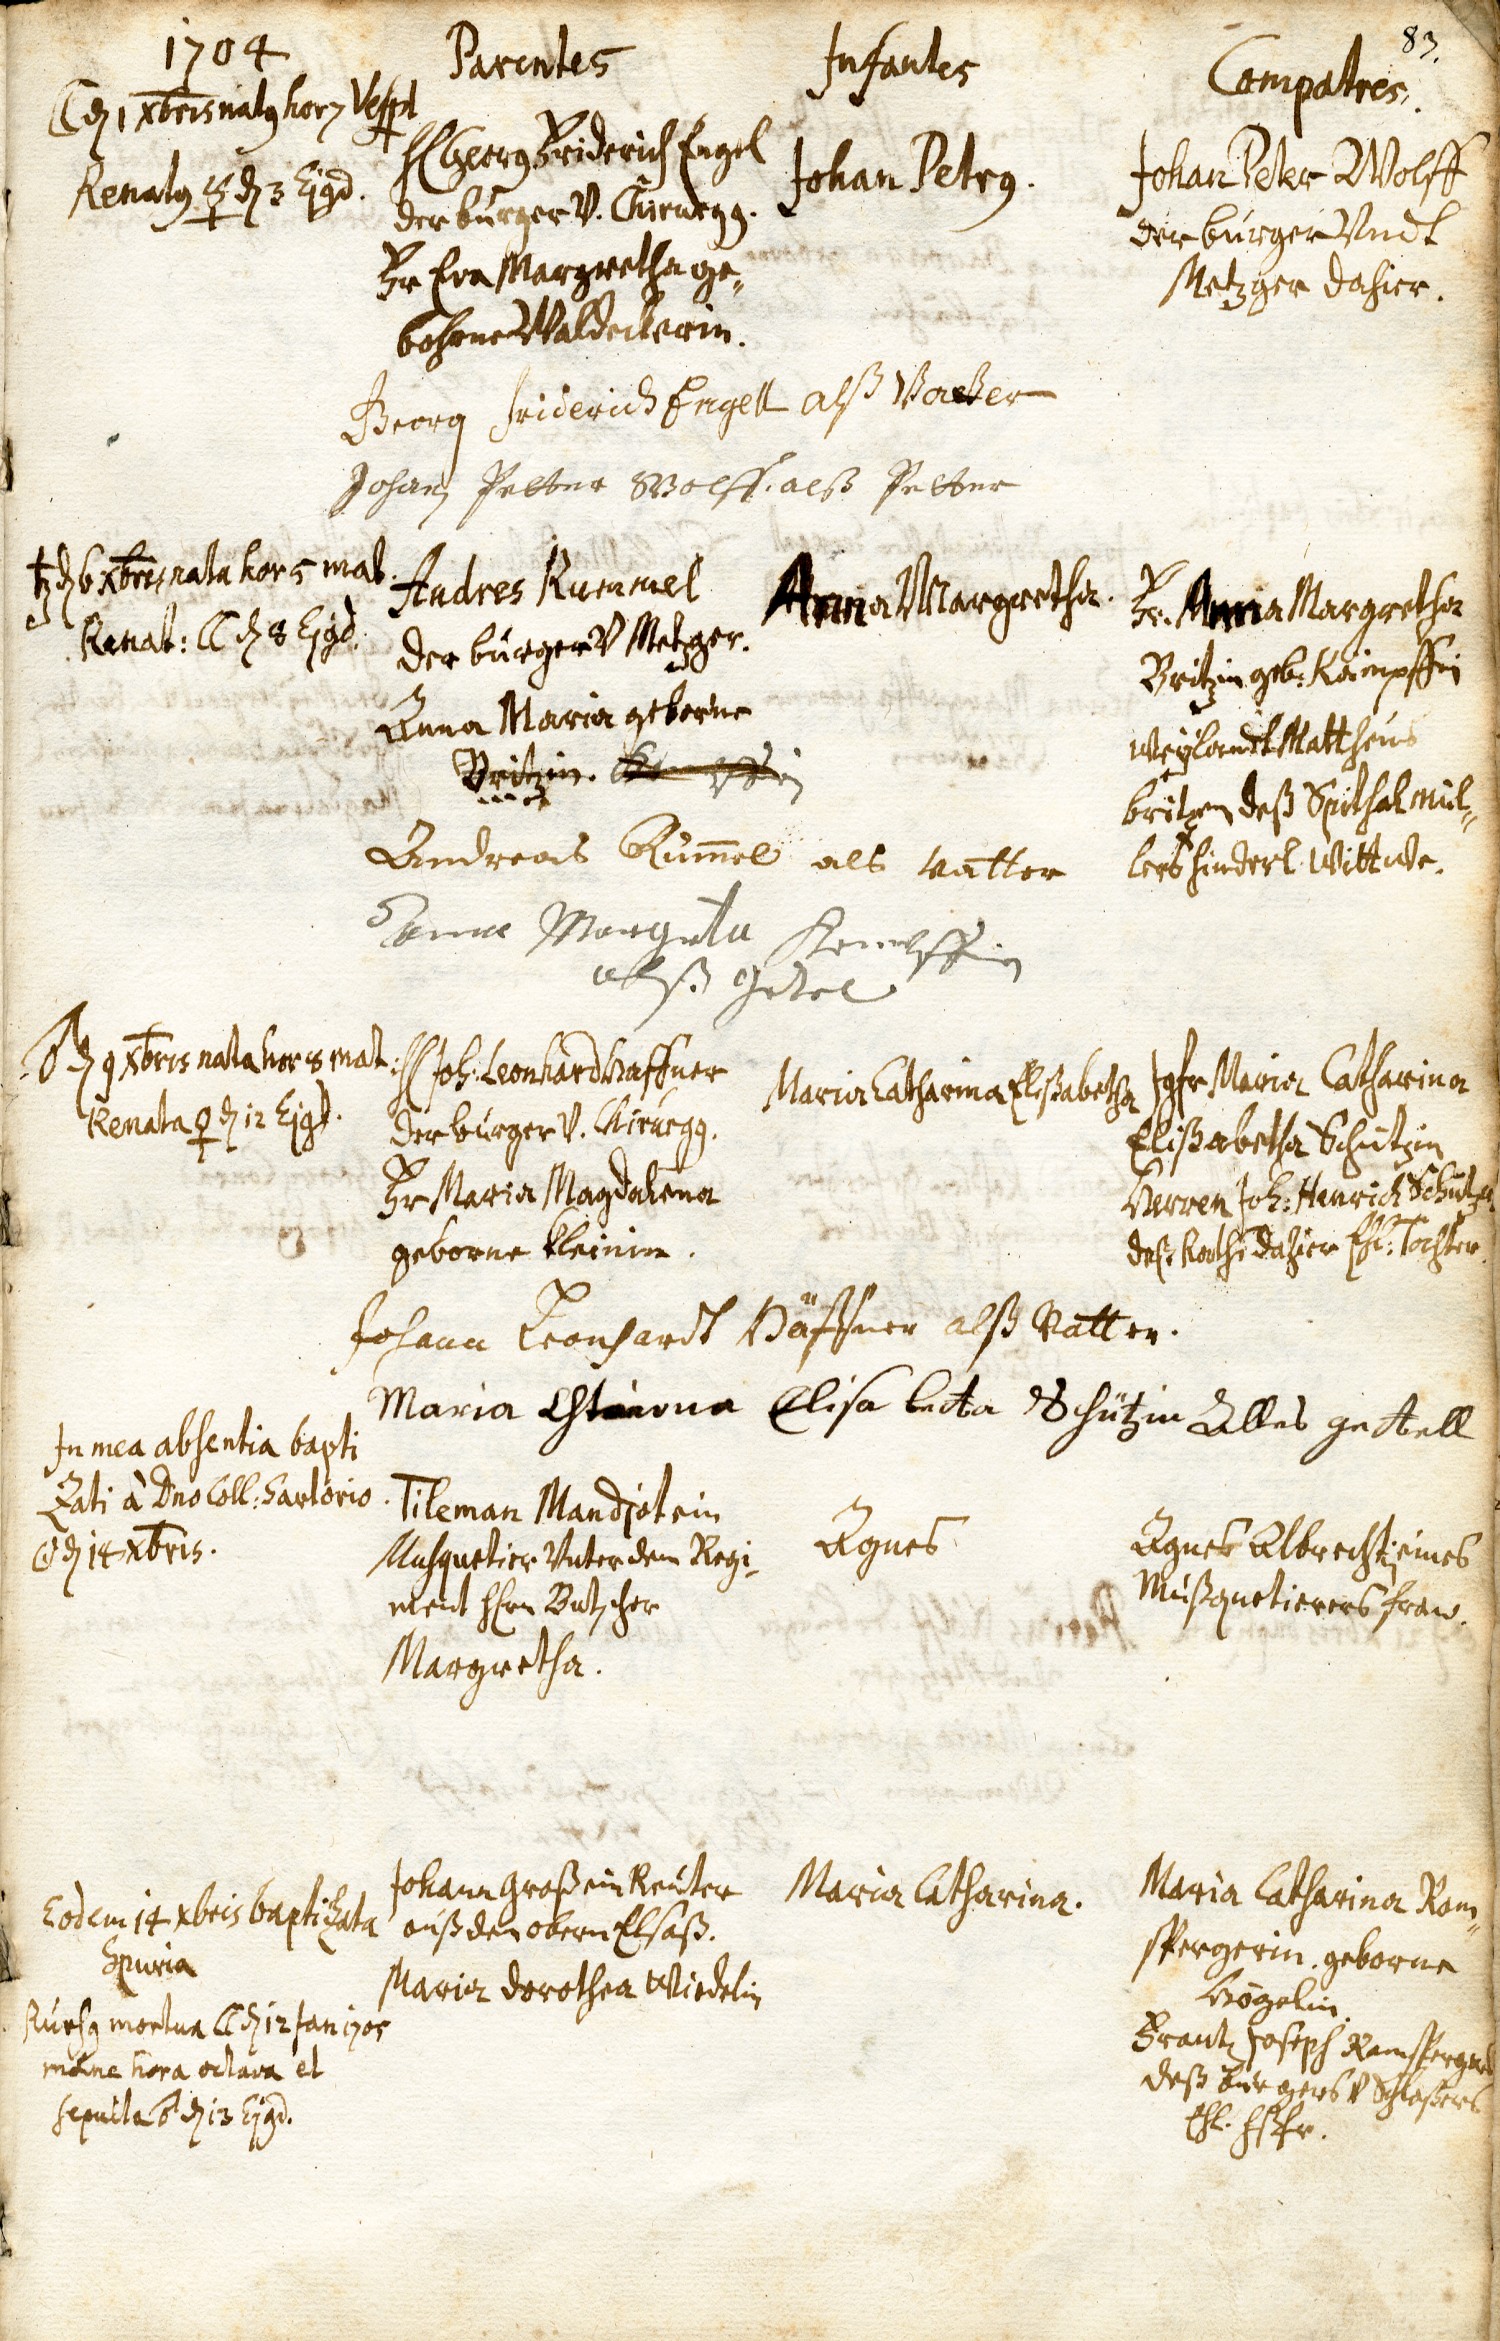 83.
1704
Parentes
Infantes
Compatres.
☾ d. 1 xbris nat9 hor 7 Vesp
Renat9 ☿ d. 3 Ejgd.
H Georg Friderich Engel
der burger V. Chirurg9.
Fr Eva Margretha ge„
bohrne Waldeckerin.
Johan Petr9.
Johan Peter Wolff
der burger Vndt
Metzger dahier.
Georg friderich Engell alß Vatter
Johan Petter Wolff. alß Petter
♄ d. 6 xbris nata hor 5 mat.
Renat: ☾ d. 8 Ejgd.
Andres Rummel
der burger V Metzger.
Anna Maria geborne
Britzin.
Anna Margretha.
Fr. Anna Margretha
Britzin geb: Kämpffin
Weylandt Mattheus
britzen deß Spithal mül„
lers hinderl. Wittwe.
Andreas Rum̄el als vatter
Anna Margreta Kempffin
alß getel
♂ d. 9 xbris nata hor 8 mat.
Renata ♀ d. 12 Ejgd.
H Joh: Leonhard Haffner
der burger V. Chirurg9.
Fr Maria Magdalena
geborne Kleinin.
Maria Catharina Elißabetha
Jgfr Maria Catharina
Elißabetha Schützin
Herren Joh: Henrich Schützen
deß Raths dahier Ehl: Tochter.
Johann Leonhardt Häffner alß Vatter.
Maria Elisa betta Schützin Alles gettell
In mea absentia bapti
zati à Dno Coll: Sartorio.
☉ d. 14 xbris.
Tileman Mandjot ein
Musquetier Vnter dem Regi„
ment Hrn Butscher
Margretha.
Agnes
Agnes Albrechtin eines
Mußquetierers fraw.
Eodem 14 xbris baptizata
Spuria
Rursg mortua ☾ d. 12 Jan 1705
mane hora octava et
sepulta ♂ d. 13 Ejgd.
Johann Groß ein Reuter
auß dem obern Elsaß.
Maria Dorothea Wiedelin
Maria Catharina.
Maria Catharina Ram„
spergerin geborne
Högelin.
Frantz Joseph Ramsperger
deß burgers V Schloßers
Ehl. Hßfr.